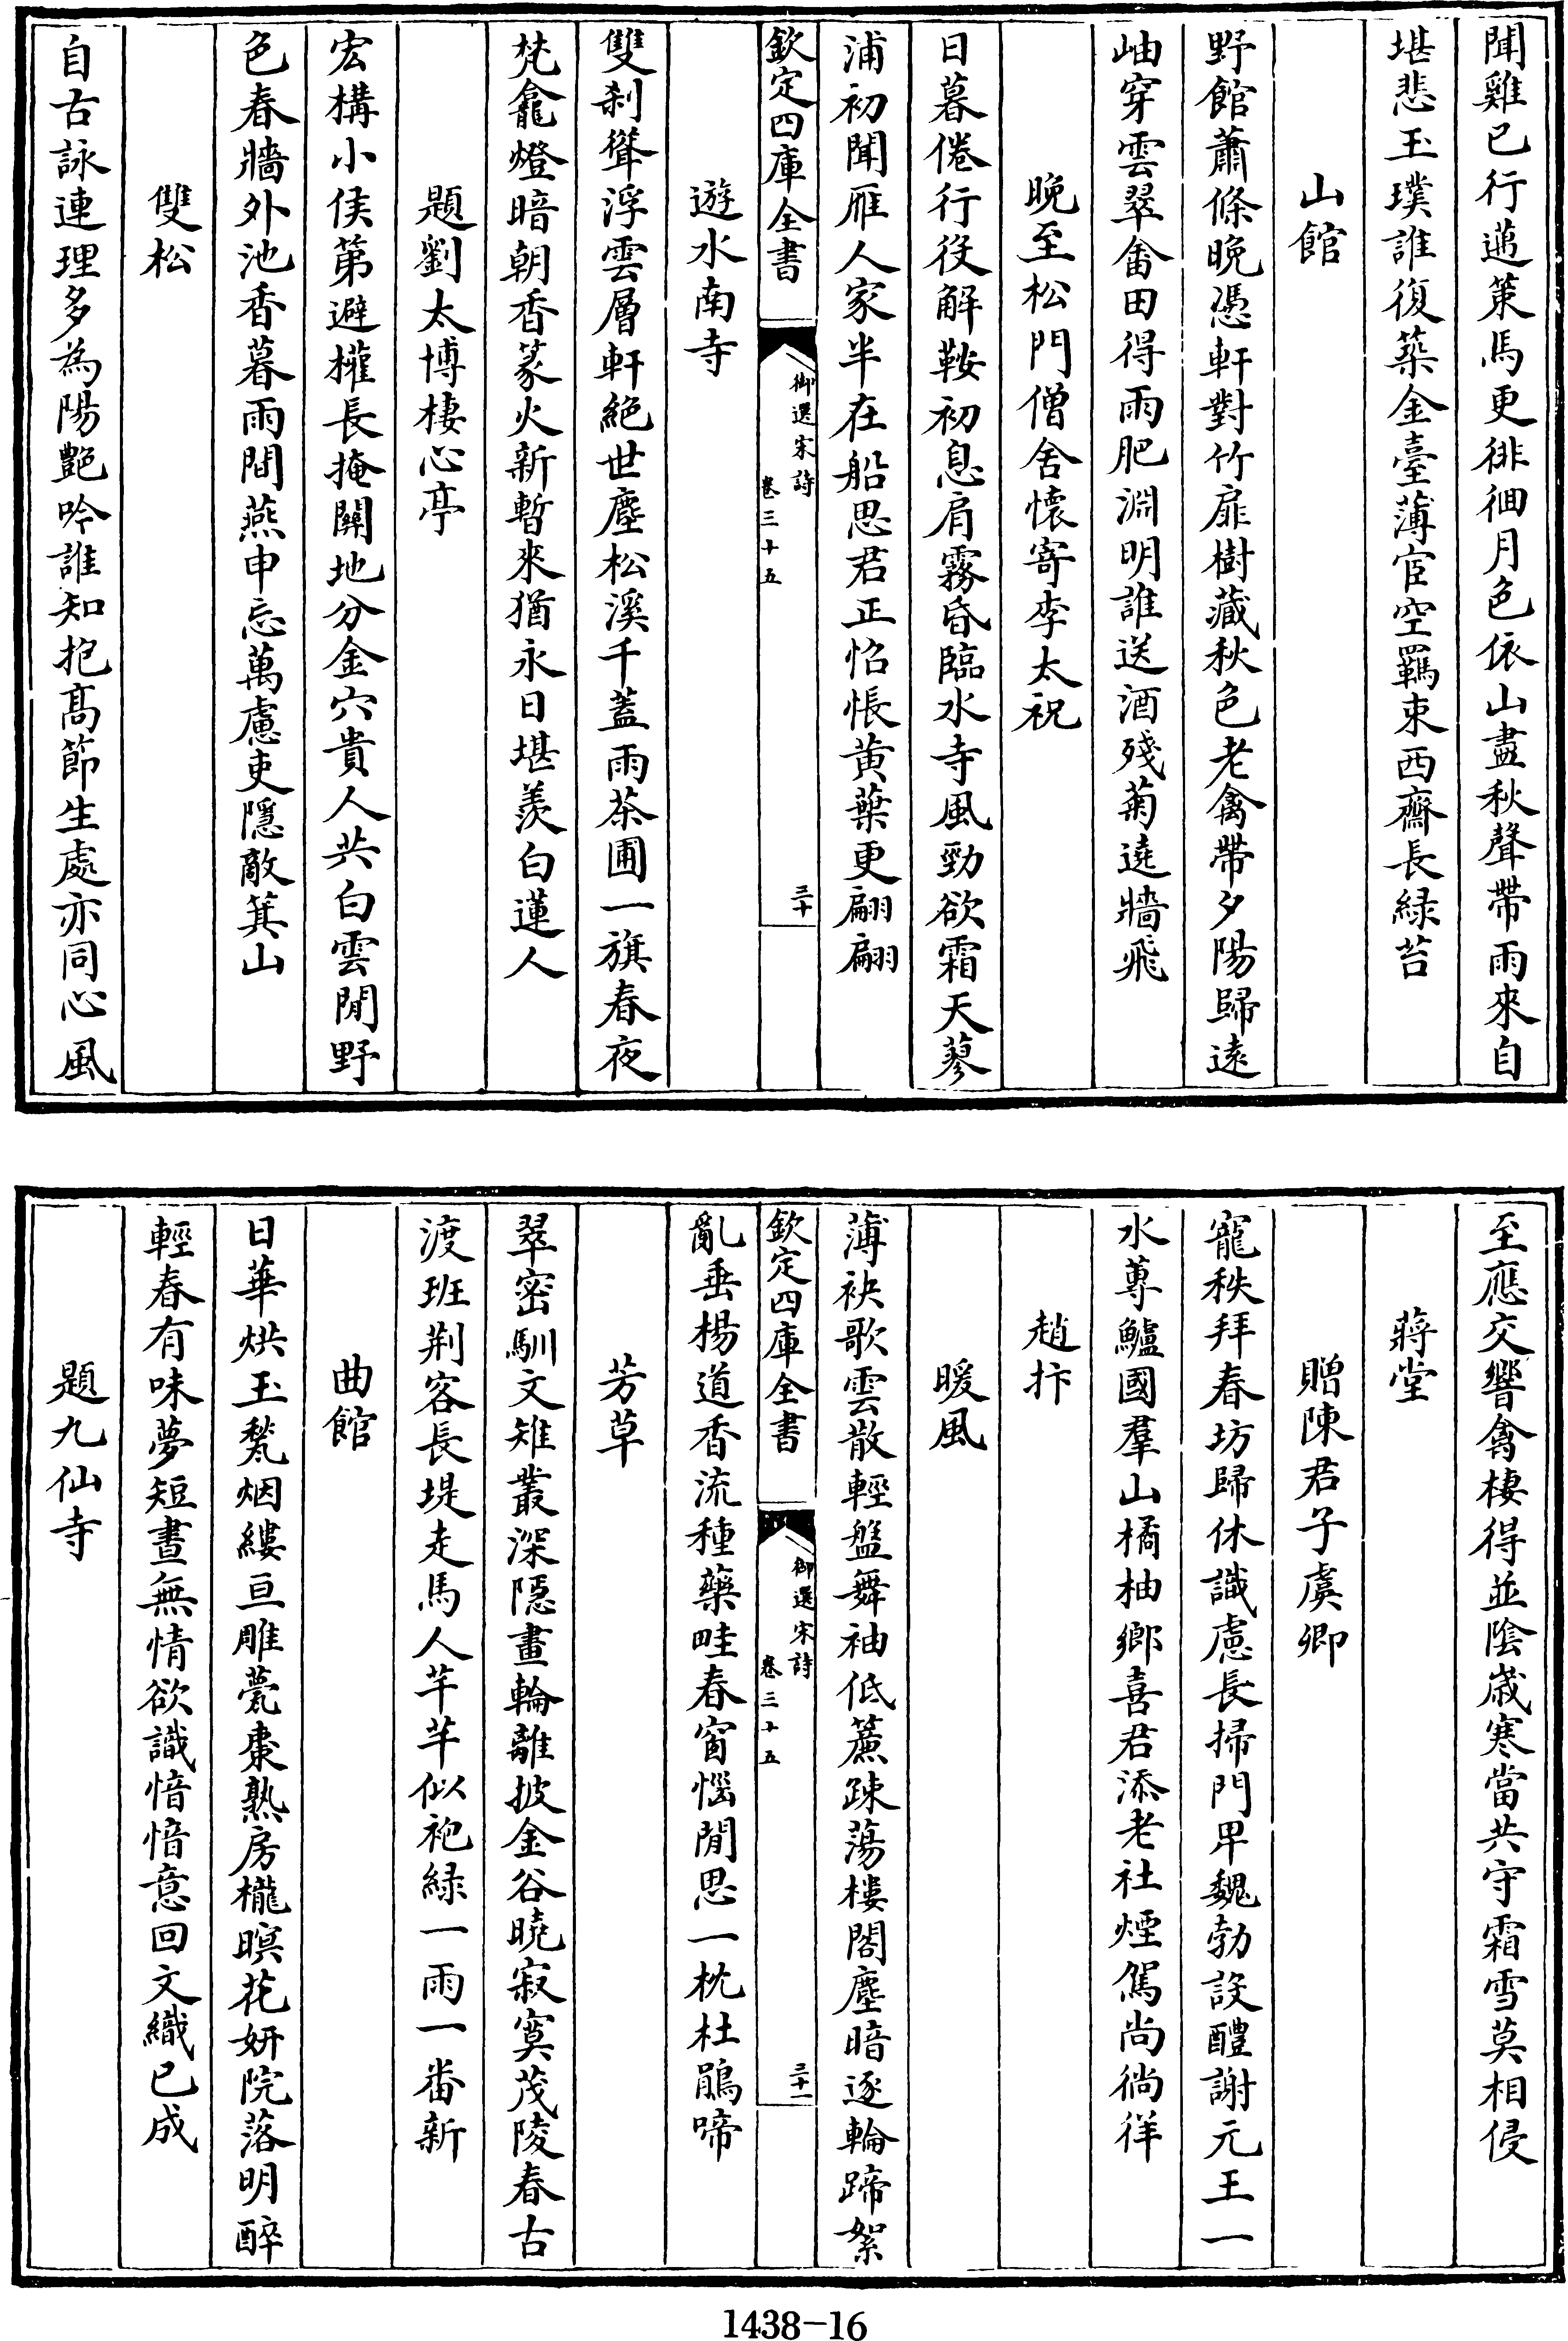 聞雞已行邁策馬更徘徊月色依山盡秋聲帶雨來自
堪悲玉璞誰復築金臺薄宦空羈束西齋長緑苔
山館
野館蕭條晩憑軒對竹扉樹藏秋色老禽帶夕陽歸遠
岫穿雲翠畬田得雨肥淵明誰送酒殘菊遶牆飛
晩至松門僧舍懷寄李太祝
日暮倦行役解鞍初息肩霧昏臨水寺風勁欲霜天蓼
浦初聞雁人家半在船思君正怊悵黄葉更翩翩
欽定四庫全書
御選宋詩
卷三十五
三十
遊水南寺
雙刹聳浮雲層軒絶世塵松溪千蓋雨茶圃一旗春夜
梵龕燈暗朝香篆火新暫來猶永日堪羨白蓮人
題劉太博棲心亭
宏構小侯第避權長掩關地分金穴貴人共白雲閒野
色春牆外池香暮雨間燕申忘萬慮吏隱敵箕山
雙松
自古詠連理多為陽艷吟誰知抱髙節生處亦同心風
至應交響禽棲得並陰嵗寒當共守霜雪莫相侵
蔣堂
贈陳君子虞卿
寵秩拜春坊歸休識慮長掃門甲魏勃設醴謝元王一
水蓴鱸國羣山橘柚鄉喜君添老社煙駕尚徜徉
趙抃
暖風
薄袂歌雲散輕盤舞袖低簾疎蕩樓閣塵暗逐輪蹄絮
欽定四庫全書
御選宋詩
卷三十五
三十一
亂垂楊道香流種藥畦春窗惱閒思一枕杜鵑啼
芳草
翠密馴文雉叢深隱畫輪離披金谷曉寂寞茂陵春古
渡班荆客長堤走馬人芊芊似袍緑一雨一番新
曲館
日華烘玉甃烟縷亘雕甍棗熟房櫳暝花妍院落明醉
輕春有味夢短晝無情欲識愔愔意回文織已成
題九仙寺
1438-16